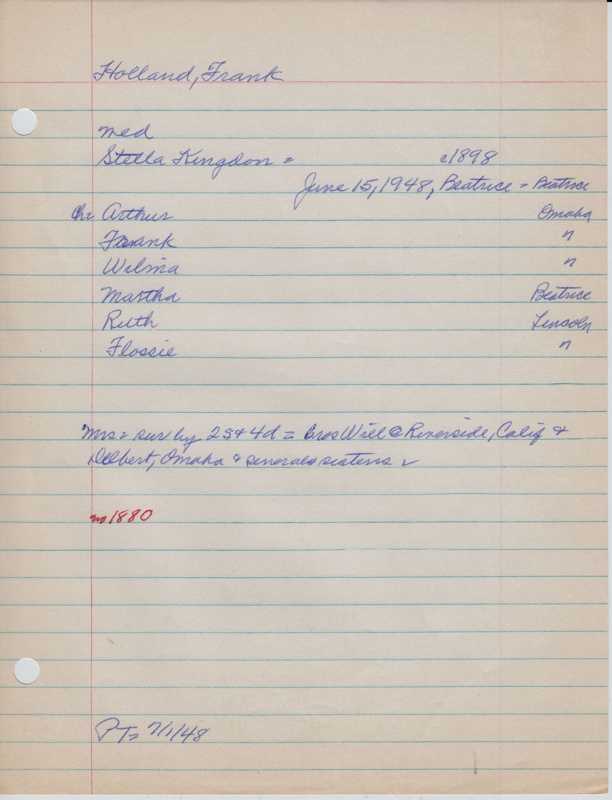 Holland, Frank
med
Stella Kingdon = c1898
June 15, 1948, Beatrice - Beatrice
Ch: Arthur Omaha
Frank "
Wilma "
Martha Beatrice
Ruth Lincoln
Flossie "
Mrs = sur by 2s & 4d = bros Will @ Riverside, Calif &
Delbert, Omaha & several sisters
m1880
PT= 7/1/48